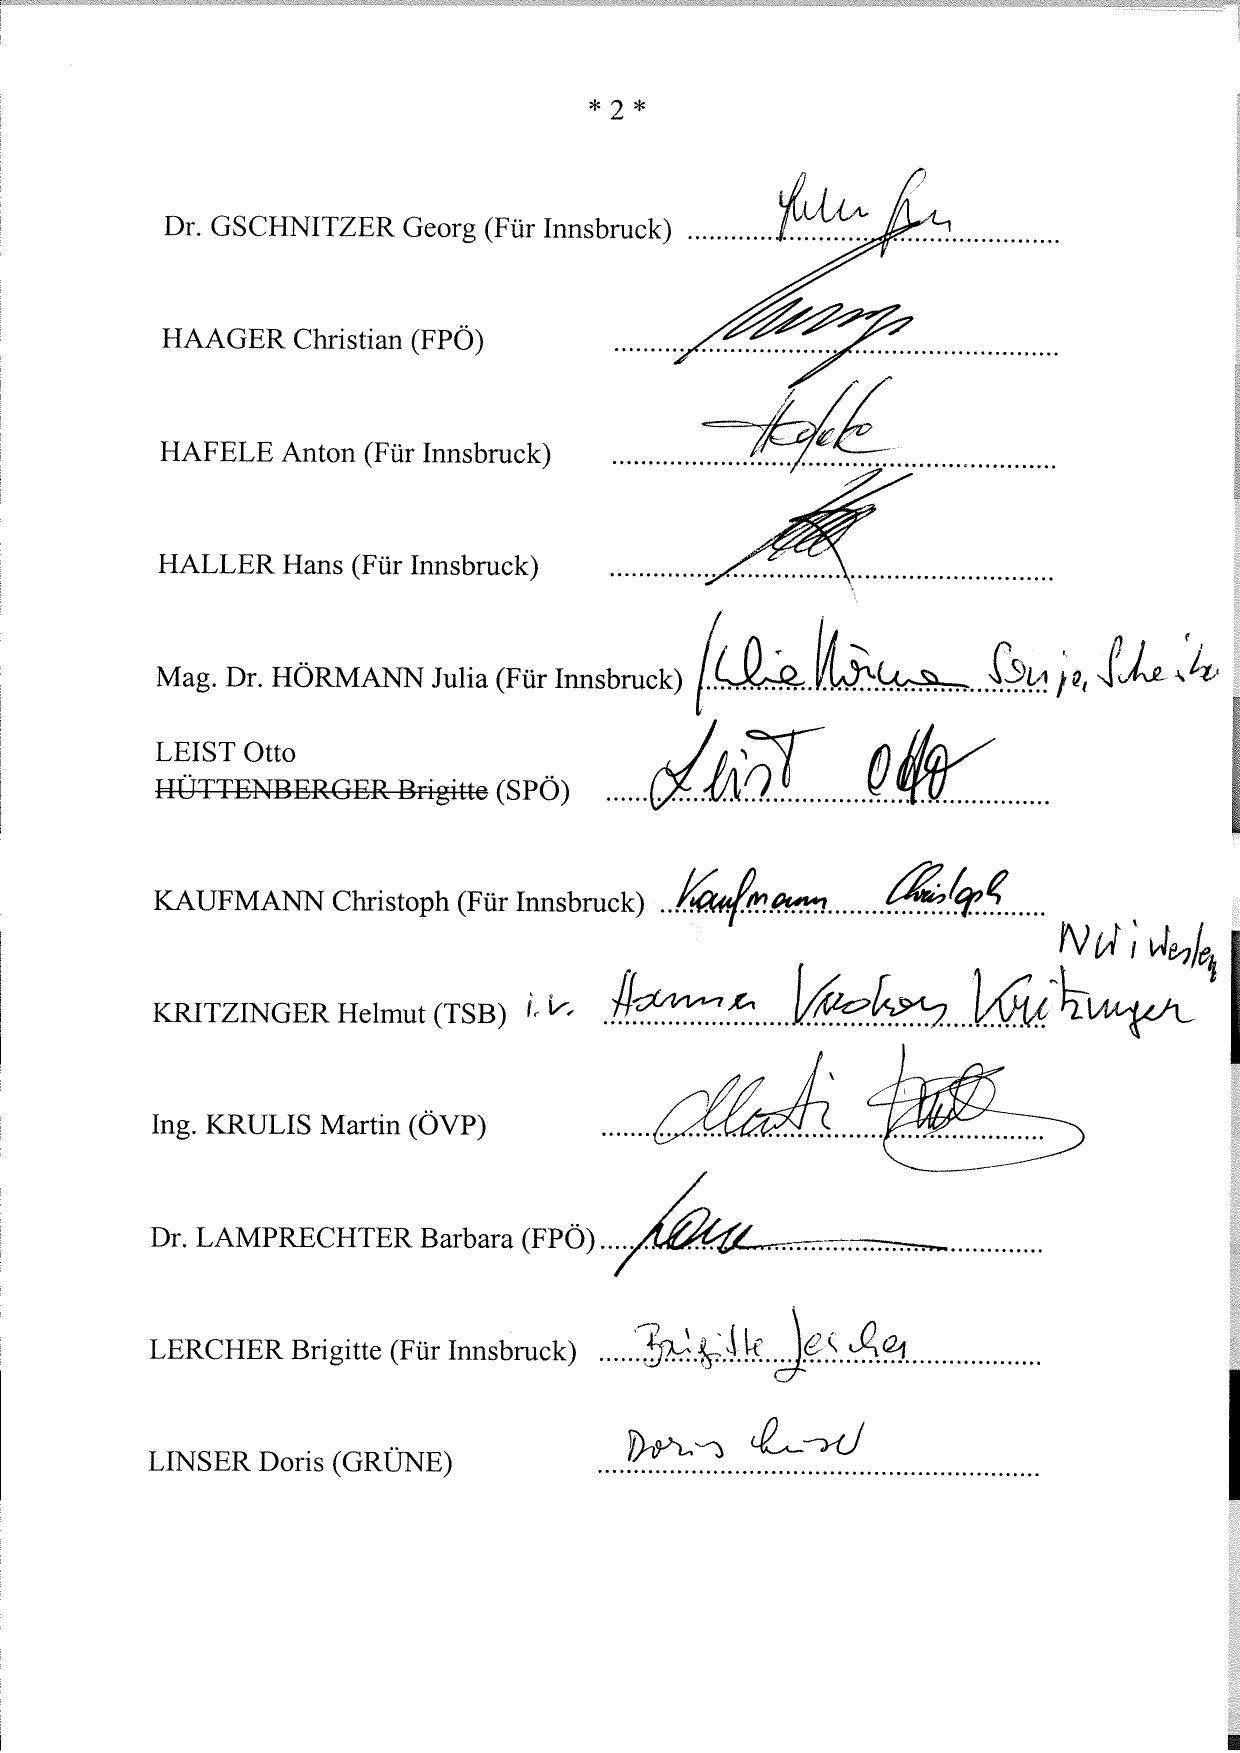 * 2 *
Dr. GSCHNITZER Georg (Für Innsbruck)
HAAGER Christian (FPÖ)
HAFELE Anton (Für Innsbruck) Hafele
HALLER Hans (Für Innsbruck)
Mag. Dr. HÖRMANN Julia (Für Innsbruck) Julia Hörmann Sonja
LEIST Otto
HÜTTENBERGER Brigitte (SPÖ) Leist Otto
KAUFMANN Christoph (Für Innsbruck) Kaufmann Christoph
KRITZINGER Helmut (TSB) i.V. Kritzinger
Ing. KRULIS Martin (ÖVP) Martin
Dr. LAMPRECHTER Barbara (FPÖ)
LERCHER Brigitte (Für Innsbruck) Brigitte Lercher
LINSER Doris (GRÜNE) Doris Linser